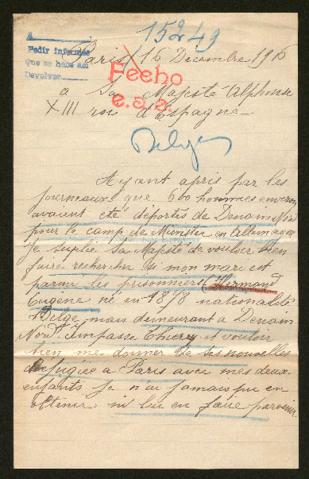 15249
A
Pedir informes
que se hace así
Devolver
Paris 16 Décembre 1916
Fecho
e.s.a.
a Sa Majesté Alphonse
XIII roi d'Espagne
Belge
Ayant apris par les
journeaux que 600 hommes environ
avaient été déportés de Denain
pour le camp de Munster en Allemagne
je suplie Sa Majesté de vouloir bien
faire rechercher si mon mari est
parmi les prisonniers
Eugène né en 1878 nationalité
Belge mais demeurant a Denain
Nord Impasse Thierry et vouloir
bien me donner de ses nouvelles
Réfugiée a Paris avec mes deux
enfants je n'ai jamais pu en
obtenir ni lui en faire parvenir